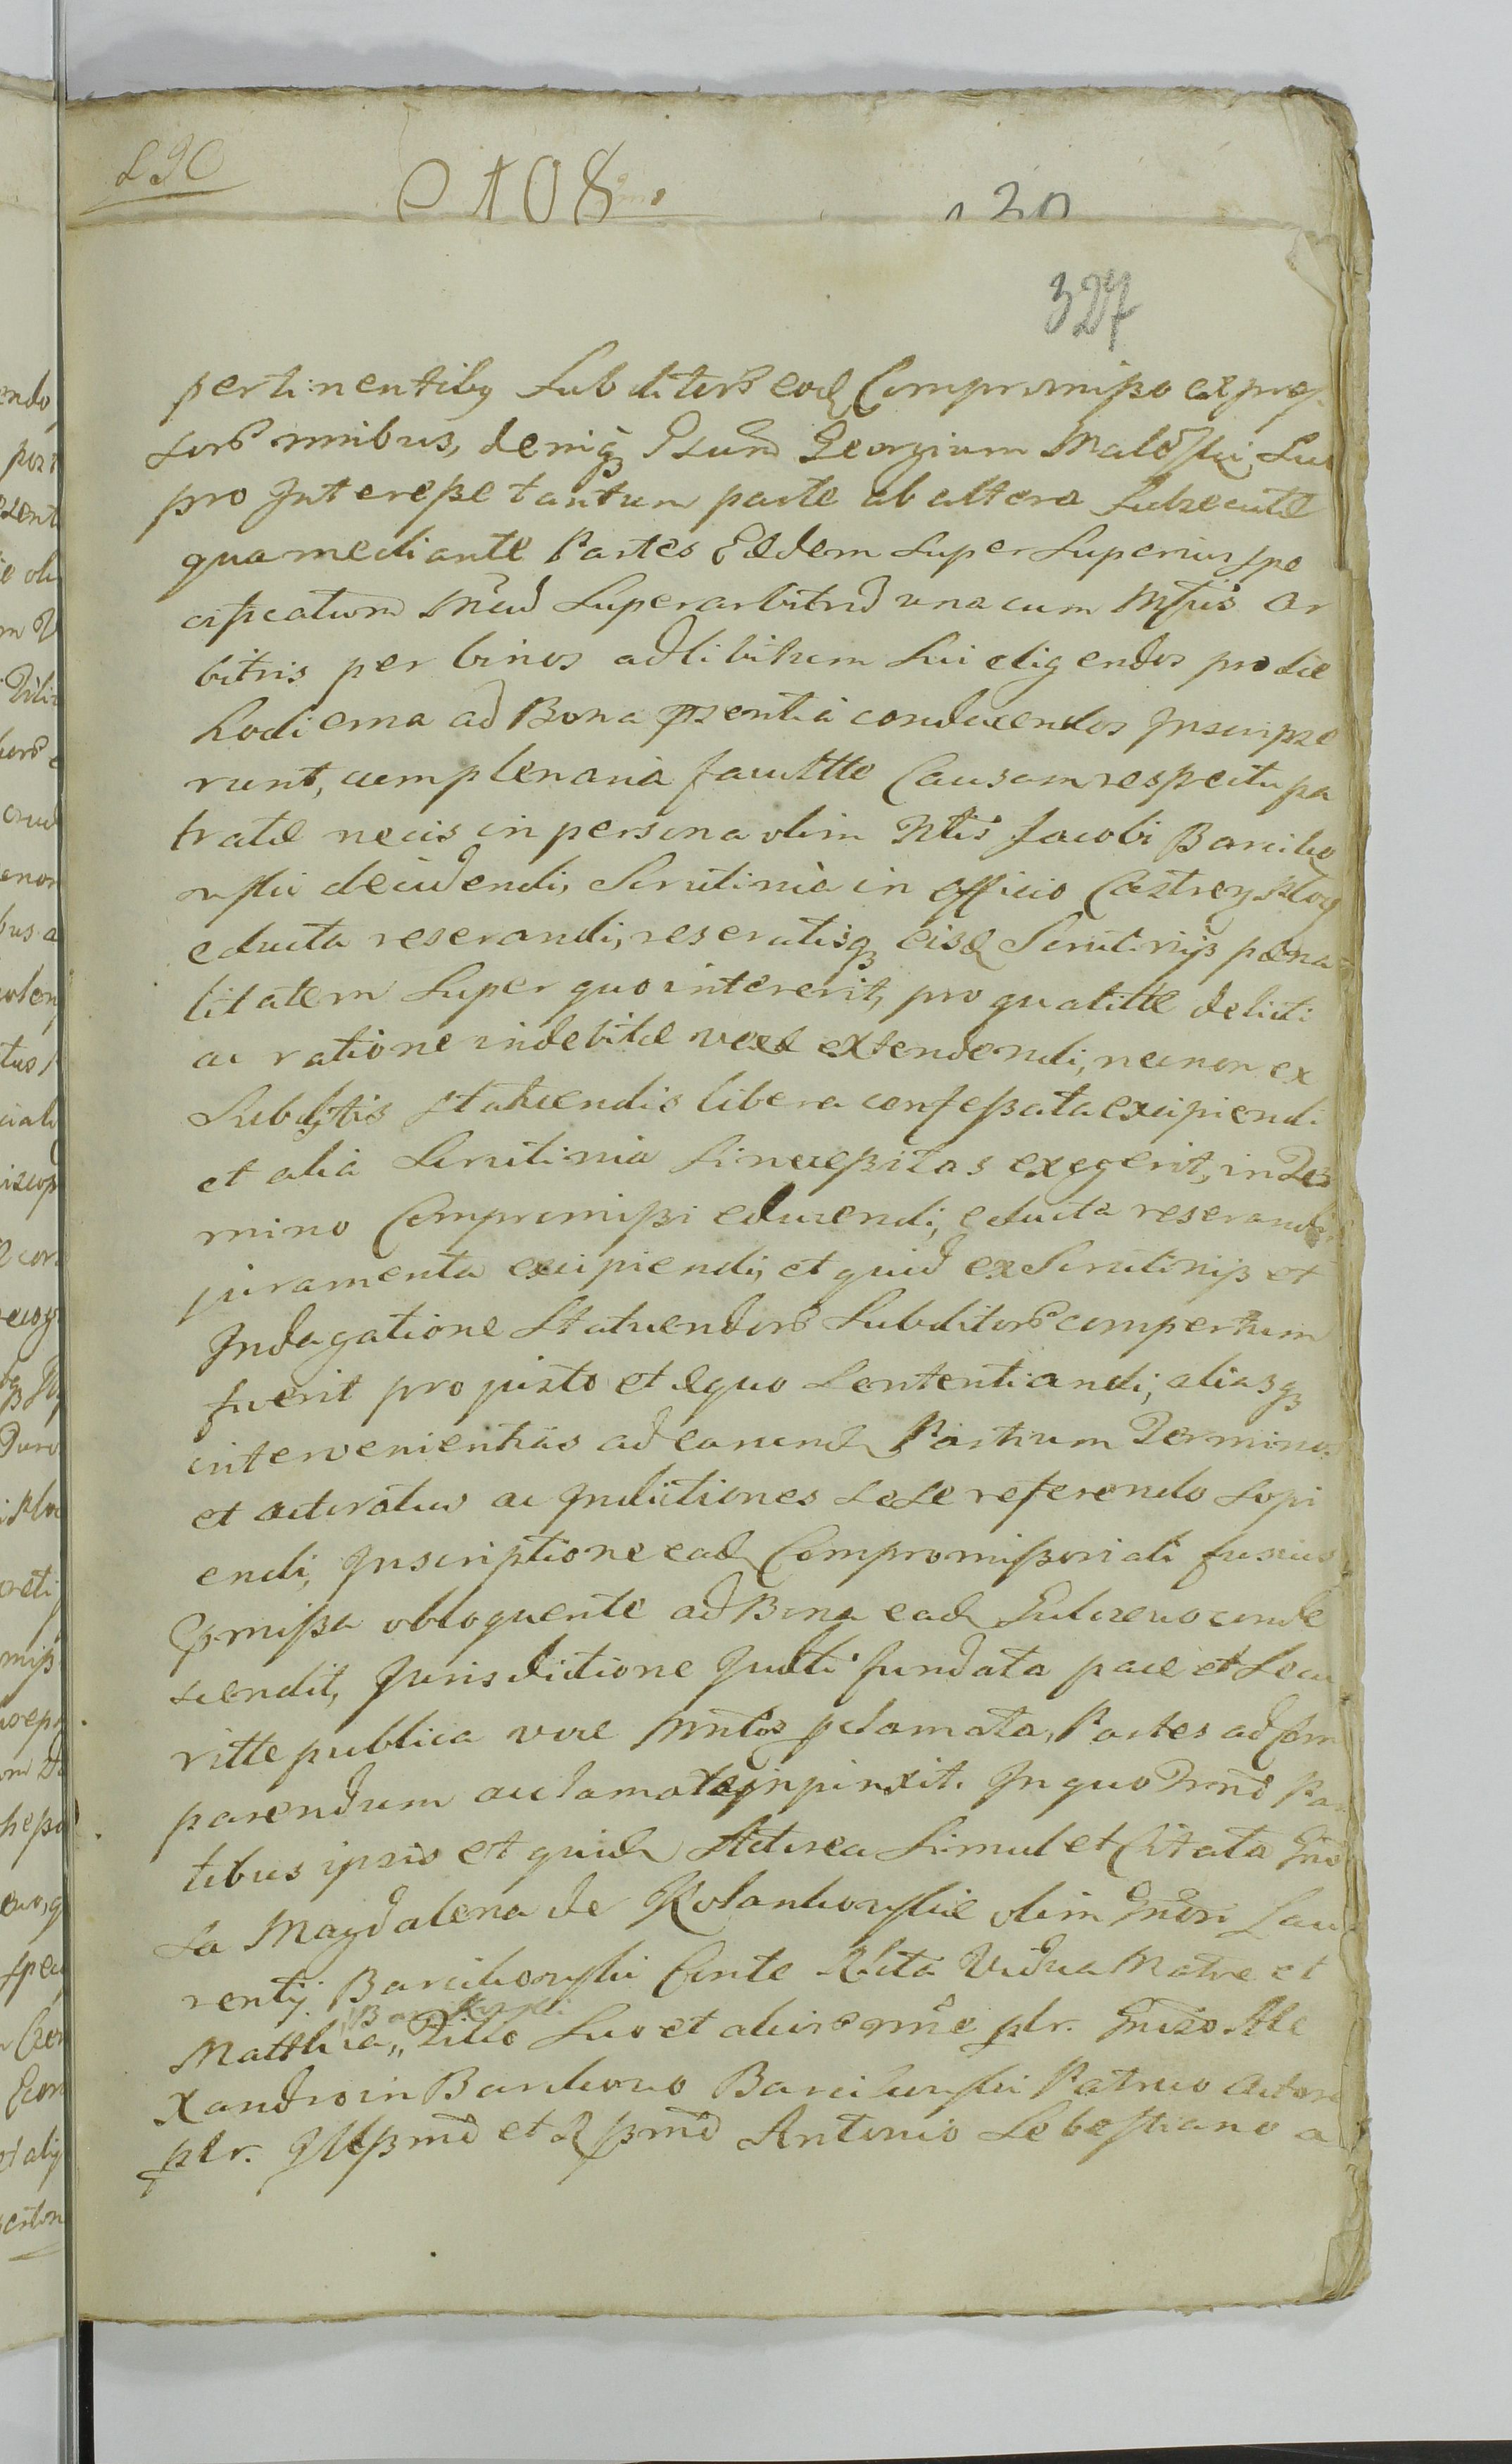 108
327
pertinentibꝫ Subditorꝰ eodꝫ Compromißo expres
sorꝰ nnibus, deniqꝫ Gsum Georgium Malewski Suo
pro Intereße tantum parte ab altera subsecutæ
qua mediante Partes Eædem Super Superius spe
cificatum Superarbitrum una cum Mfcis Ar
bitris per binos ad libitum sui eligendos pro die
hodierna ad Bona præsentia conducendos Inscripse
runt, cum plenaria facultte Causam respectu pa
tratæ necis in persona olim Nlis Jacobi Barciko
wski decidendi, Scrutinia in officio Castren Ploc
educta reserandi, reseratisqꝫ eisdꝫ Scrutinijs pæna
litatem Super quo intererit, pro qualitte delicti
ac ratione indebitæ vexæ extendendi, necnon ex
Subditis statuendis libera confeßata excipiendi
et alia Scrutinia si neceßitas exegerit, in Ter
mino Compromißi educendi, educta reserandi
juramenta excipiendi, et quid ex Scrutinijs et
Indagatione Statuendorꝰ Subditorꝰ compertum
fuerit pro justo et æquo Sententiandi, aliasqꝫ
intervenientias ad earundꝫ Partium Terminos
et actoratus ac Inductiones sese referendo sopi
endi, Inscriptione eadꝫ Compromißoriali fusius
præmißa obloquente ad Bona eadꝫ Gulczewo conde
scendit, Jurisdictione Judtii fundata pace et Secu
ritte publica voce Mintrlis pclamata, Partes ad Com
parendum acclamata injunxit. In quo Trmno Par
tibus ipsis et quidꝫ Actorea Simul et Citata Gno
sa Magdalena de Kolankowskie olim Gnosi Lau
rentij Barcikowski Conte Rlicta Vidua Matre et
Barcikowski
Matthia,, Filio Suo et aliorꝰ nnie plr. Gnoso Ale
xandro in Barckowo Barcikowski Patruo Actore
plr. Illßmo et Rßmo Antonio Sebastiano a